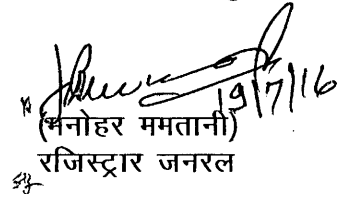 19/7/16
(मनोहर ममतानी)
रजिस्ट्रार जनरल